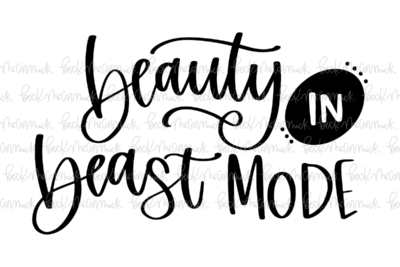 beauty IN
beast MODE